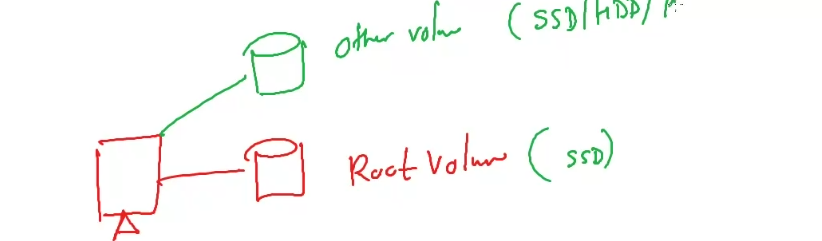 Other volum (SSD/HDD/
Root Volum (SSD)